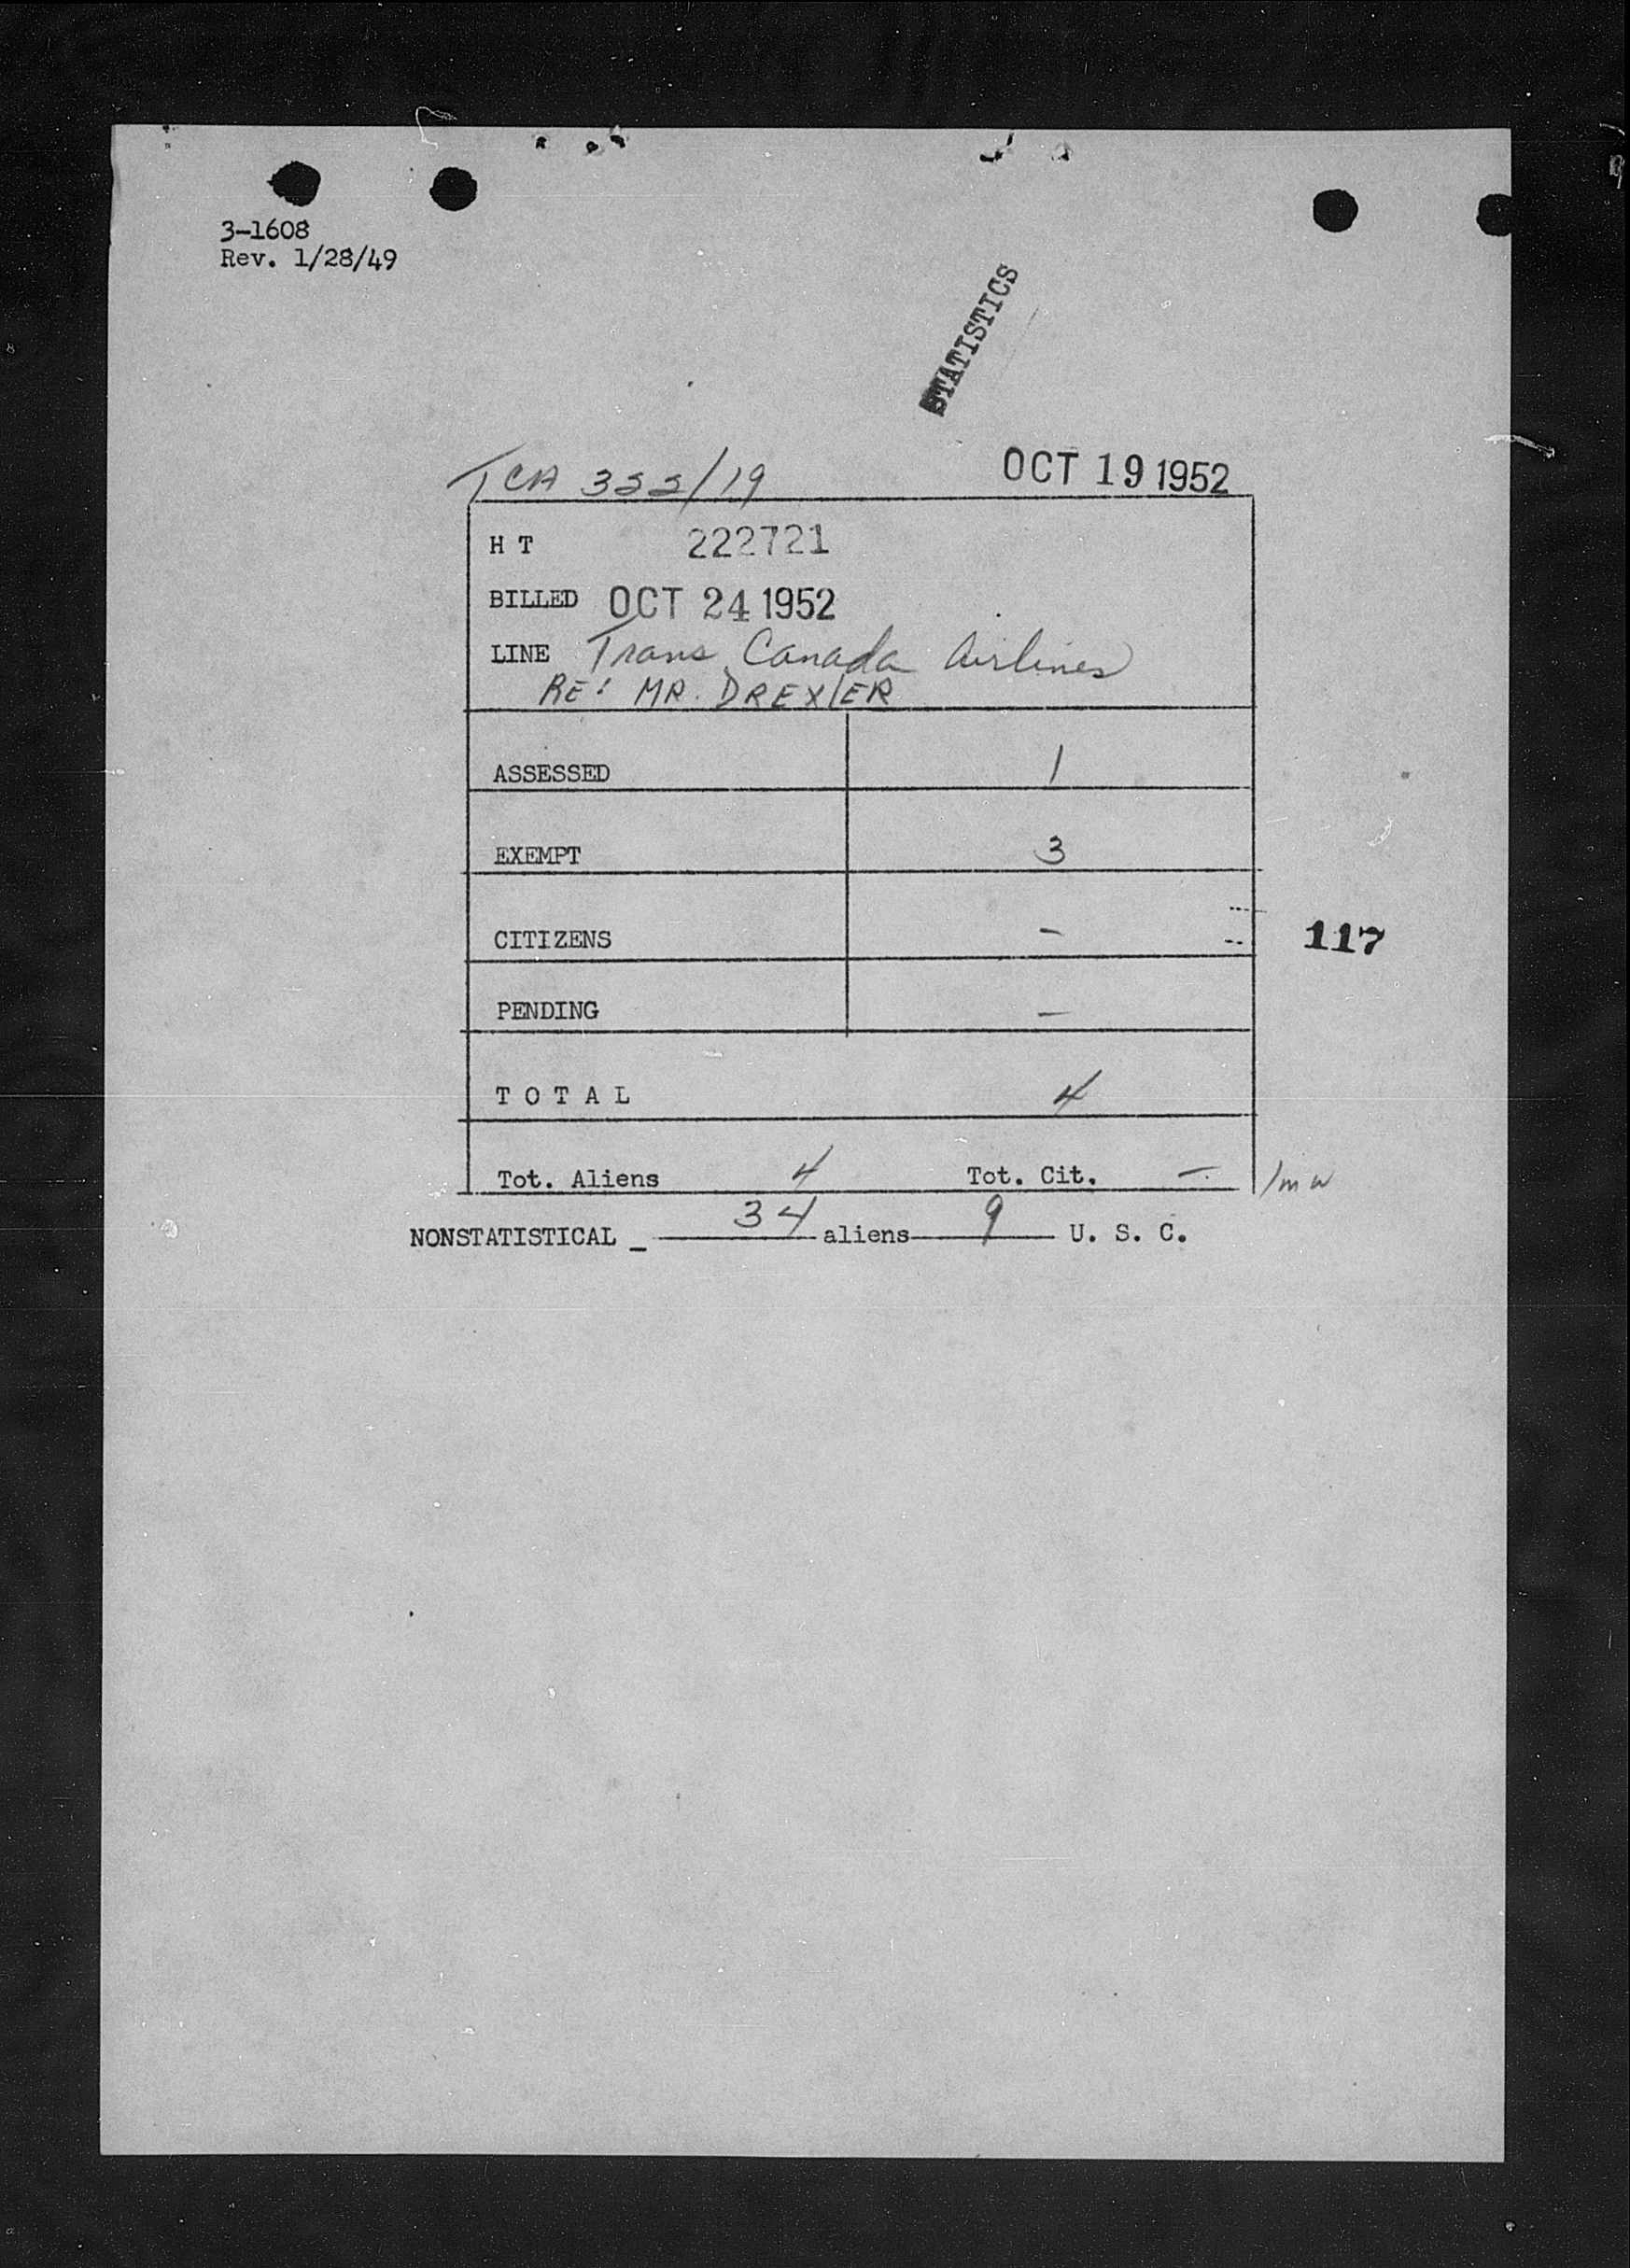 3-1608
Rev. 1/28/49
STATISTICS
TCA 322/19 OCT 19 1952
H T 222721
BILLED OCT 24 1952
LINE Trans Canada Airlines
RE: MR. DREXLER
ASSESSED 1
EXEMPT 3
CITIZENS -
117
PENDING -
T O T A L 4
Tot. Aliens 4 Tot. Cit. - /mw
NONSTATISTICAL _ 34 aliens 9 U. S. C.